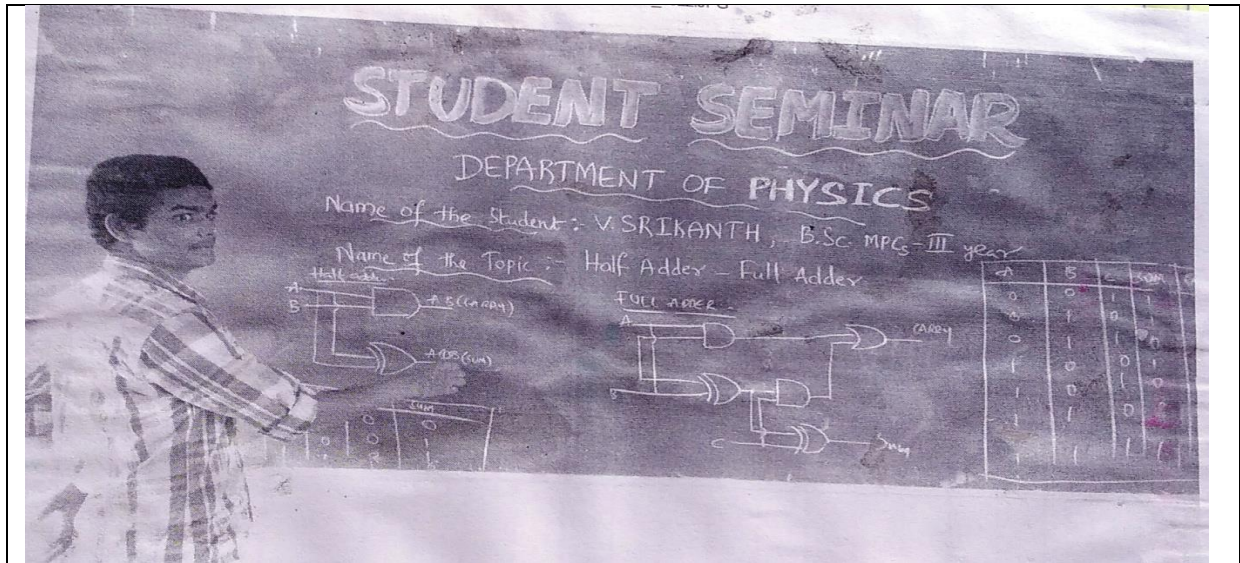 STUDENT SEMINAR
DEPARTMENT OF PHYSICS
Name of the Student:- V. SRIKANTH, B.Sc. MPCs-III year
Name of the Topic:- Half Adder - Full Adder
Half adder
A
B
AB(CARRY)
A⊕B(SUM)
SUM
0 0
0 0 1
FULL ADDER:-
A
B
C
CARRY
Sum
A B C SUM
0 0 1 1
0 1 0 1
0 1 1 0
1 0 0 1
1 0 1 0
1 1 0
1 1 1 1